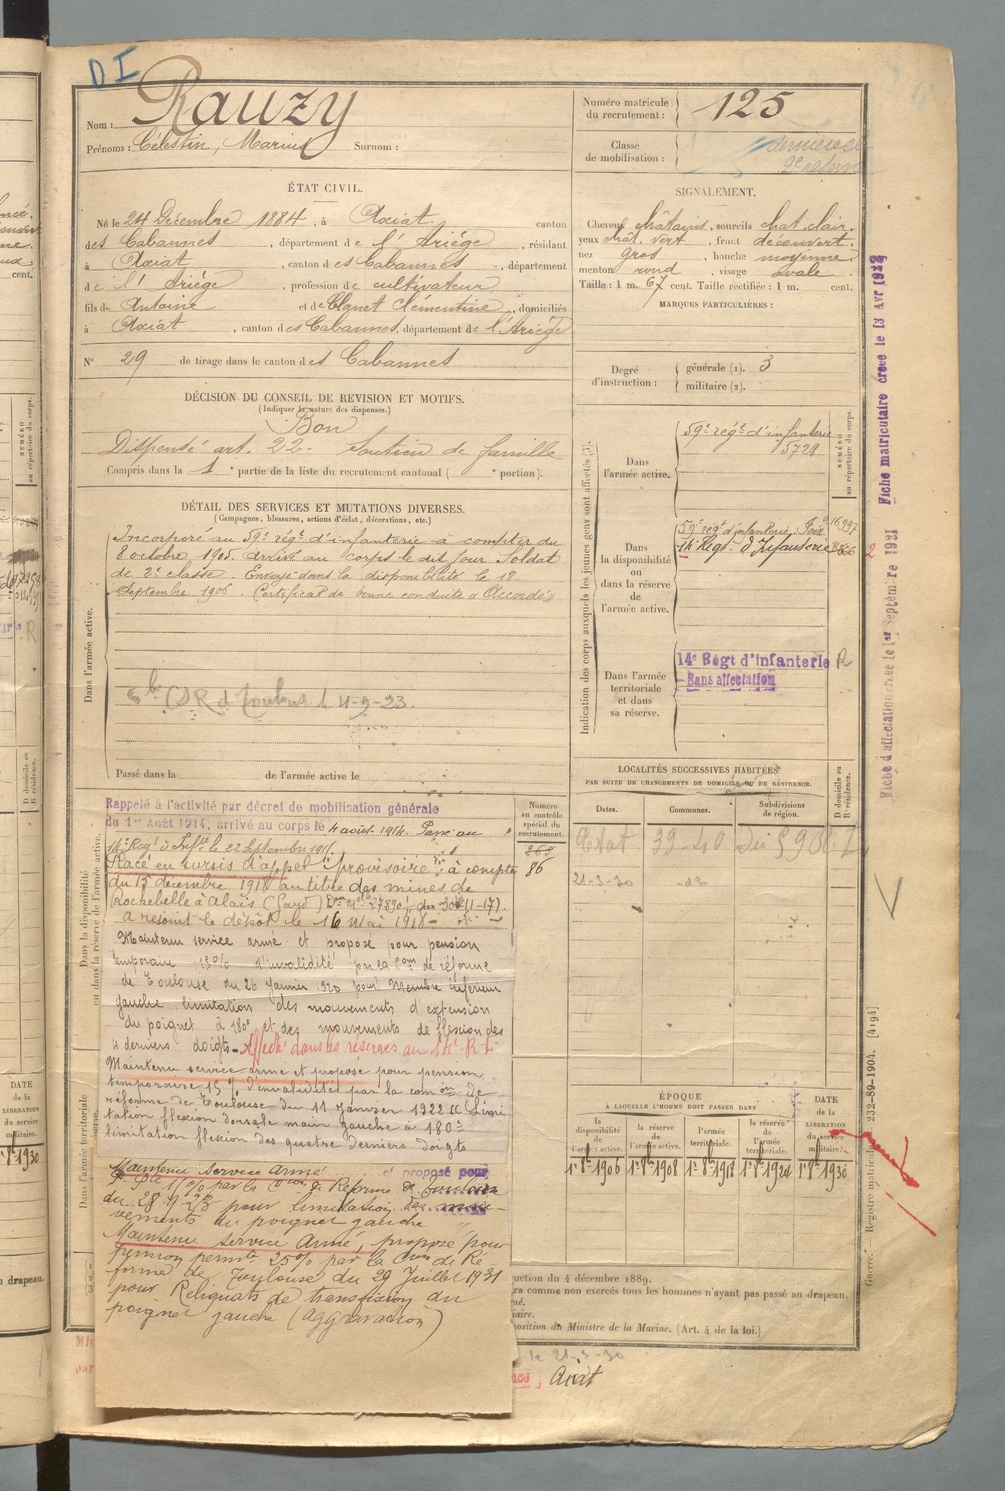 DI
Nom : Rauzy
Prénoms : Célestin, Marius Surnom :
Numéro matricule du recrutement : 125
Classe de mobilisation :
ÉTAT CIVIL.
Né le 24 Décembre 1884, à Axiat, canton
des Cabannes, département de l'Ariège, résidant
à Axiat, canton des Cabannes, département
de l'Ariège, profession de cultivateur
fils de Antoine et de Clanet Clémentine, domiciliés
à Axiat, canton des Cabannes, département de l'Ariège
N° 29 de tirage dans le canton des Cabannes
SIGNALEMENT.
Cheveux châtains, sourcils chat. clair,
yeux chât. vert, front découvert,
nez gros, bouche moyenne,
menton rond, visage ovale.
Taille : 1 m. 67 cent. Taille rectifiée : 1 m. cent.
MARQUES PARTICULIÈRES :
Degré d'instruction : générale (1). 3
militaire (2).
DÉCISION DU CONSEIL DE REVISION ET MOTIFS.
(Indiquer la nature des dispenses.)
Bon
Dispensé art. 22 - Soutien de famille
Compris dans la 1e partie de la liste du recrutement cantonal ( e portion).
DÉTAIL DES SERVICES ET MUTATIONS DIVERSES.
(Campagnes, blessures, actions d'éclat, décorations, etc.)
Dans l'armée active.
Incorporé au 59e régt d'infanterie à compter du
8 octobre 1905. arrivé au corps le dit jour. Soldat
de 2e classe. Envoyé dans la disponibilité le 18
Septembre 1906. Certificat de bonne conduite "Accordé"
4-9-23.
Passé dans la de l'armée active le
Indication des corps auxquels les jeunes gens sont affectés (3).
NUMÉRO au répertoire du corps.
Dans l'armée active.
59e régt d'infanterie
5728
Dans la disponibilité ou dans la réserve de l'armée active.
59e regt d'infanterie, Foix
14e Régt d'Infanterie
Dans l'armée territoriale et dans sa réserve.
14e Régt d'Infanterie R
Sans affectation
Fiche matriculaire créée le 13 Avr
Fiche d'affectation créée le 1er Septembre 1921
LOCALITÉS SUCCESSIVES HABITÉES
PAR SUITE DE CHANGEMENTS DE DOMICILE OU DE RÉSIDENCE.
Dates. Communes. Subdivisions de région. D domicile ou R résidence.
21-3-30 - do
Dans la disponibilité ou dans la réserve de l'armée active.
Rappelé à l'activité par décret de mobilisation générale
du 1er Août 1914, arrivé au corps le 4 août 1914. Passé au
14e Rég. d'Inftie le 22 Septembre 191
Placé en sursis d'appel "provisoire" à compter
du 15 décembre 191 au titre des mines de
Rochebelle à Alais (Gard)
a rejoint le dépôt le 16 Mai 1918
Numéro au contrôle spécial du recrutement.
268
86
Maintenu service armé et proposé pour pension
temporaire 15% d'invalidité par la Com de réforme
de Toulouse du 26 Janvier 1920 pour Membre inférieur
gauche limitation des mouvements d'extension
du poignet à 180° et des mouvements de flexion des
4 derniers doigts - Affecté dans les réserves au 14e R.I.
Maintenu service armé et proposé pour pension
temporaire 15% d'invalidité par la comon de
réforme de Toulouse du 11 Janvier 1922 "Limi
tation flexion dorsale main gauche à 180°
limitation flexion des quatre derniers doigts
Dans l'armée territoriale
Maintenu Service Armé et proposé pour
par la Con de Réforme de Toulouse
du 28 pour limitation des mou-
vements du poignet gauche
Maintenu Service Armé, proposé pour
pension permte 25% par la Con de Ré
forme de Toulouse du 29 Juillet 1931
pour Reliquats de transfixion du
poignet gauche (aggravation)
ÉPOQUE
À LAQUELLE L'HOMME DOIT PASSER DANS
la disponibilité de l'armée active. la réserve de l'armée active. l'armée territoriale. la réserve de l'armée territoriale. DATE de la LIBÉRATION du service militaire.
1er 8bre 1906 1er 8bre 1908 1er 8bre 1918 1er 8bre 1924 1er 8bre 1930
232-89-1904. [4194]
Guerre. Registre matricule
uction du 4 décembre 1889.
ra comme non exercés tous les hommes n'ayant pas passé au drapeau.
position du Ministre de la Marine. (Art. 4 de la loi.)
le 21-3-30
Axiat
DATE de la LIBÉRATION du service militaire.
1930
u drapeau.